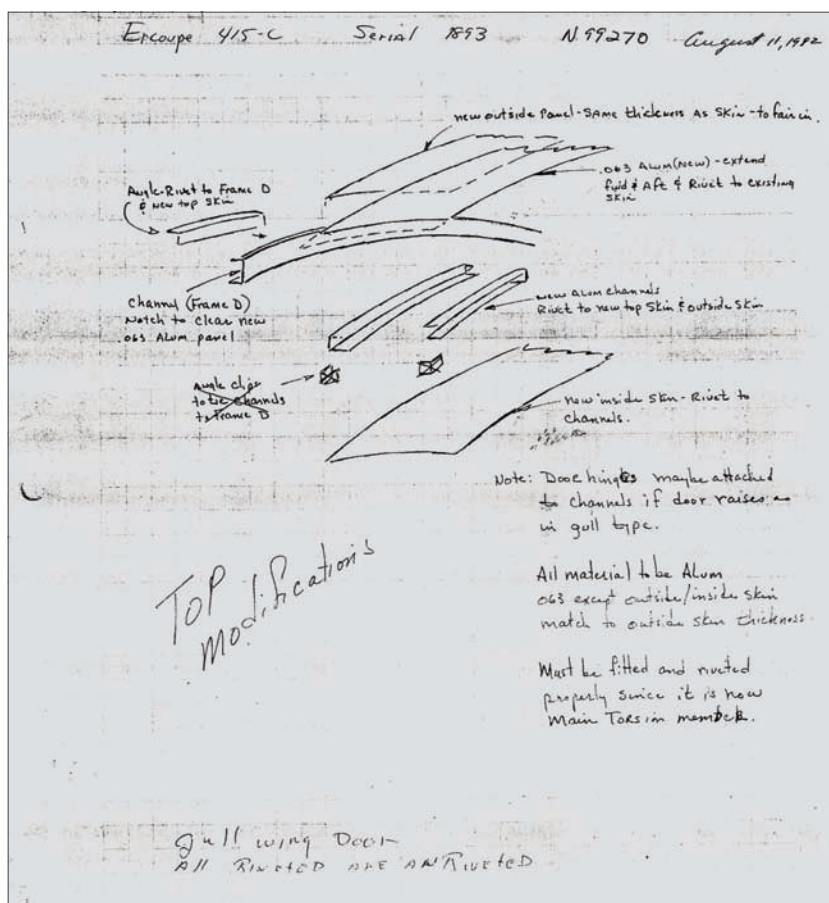 Ercoupe 415-C Serial 1893 N 99270 August 11, 1982
new outside Panel - SAME thickness As SKIN - to fair in.
.063 Alum (New) - extend
fwd & Aft & Rivet to existing
skin
Angle - Rivet to Frame D
& New top Skin
Channel (Frame D)
Notch to clear new
063 Alum panel
new alum channels
Rivet to new top Skin & outside Skin
Angle clips
to tie channels
to Frame D
new inside skin - Rivet to
channels.
Note: Door hinges maybe attached
to channels if door raises
in gull type.
All material to be Alum
063 except outside/inside skin
match to outside skin thickness
Must be fitted and riveted
properly since it is now
Main Torsion member.
TOP
Modifications
Gull wing Door
All RIVETED ARE AN RIVETED